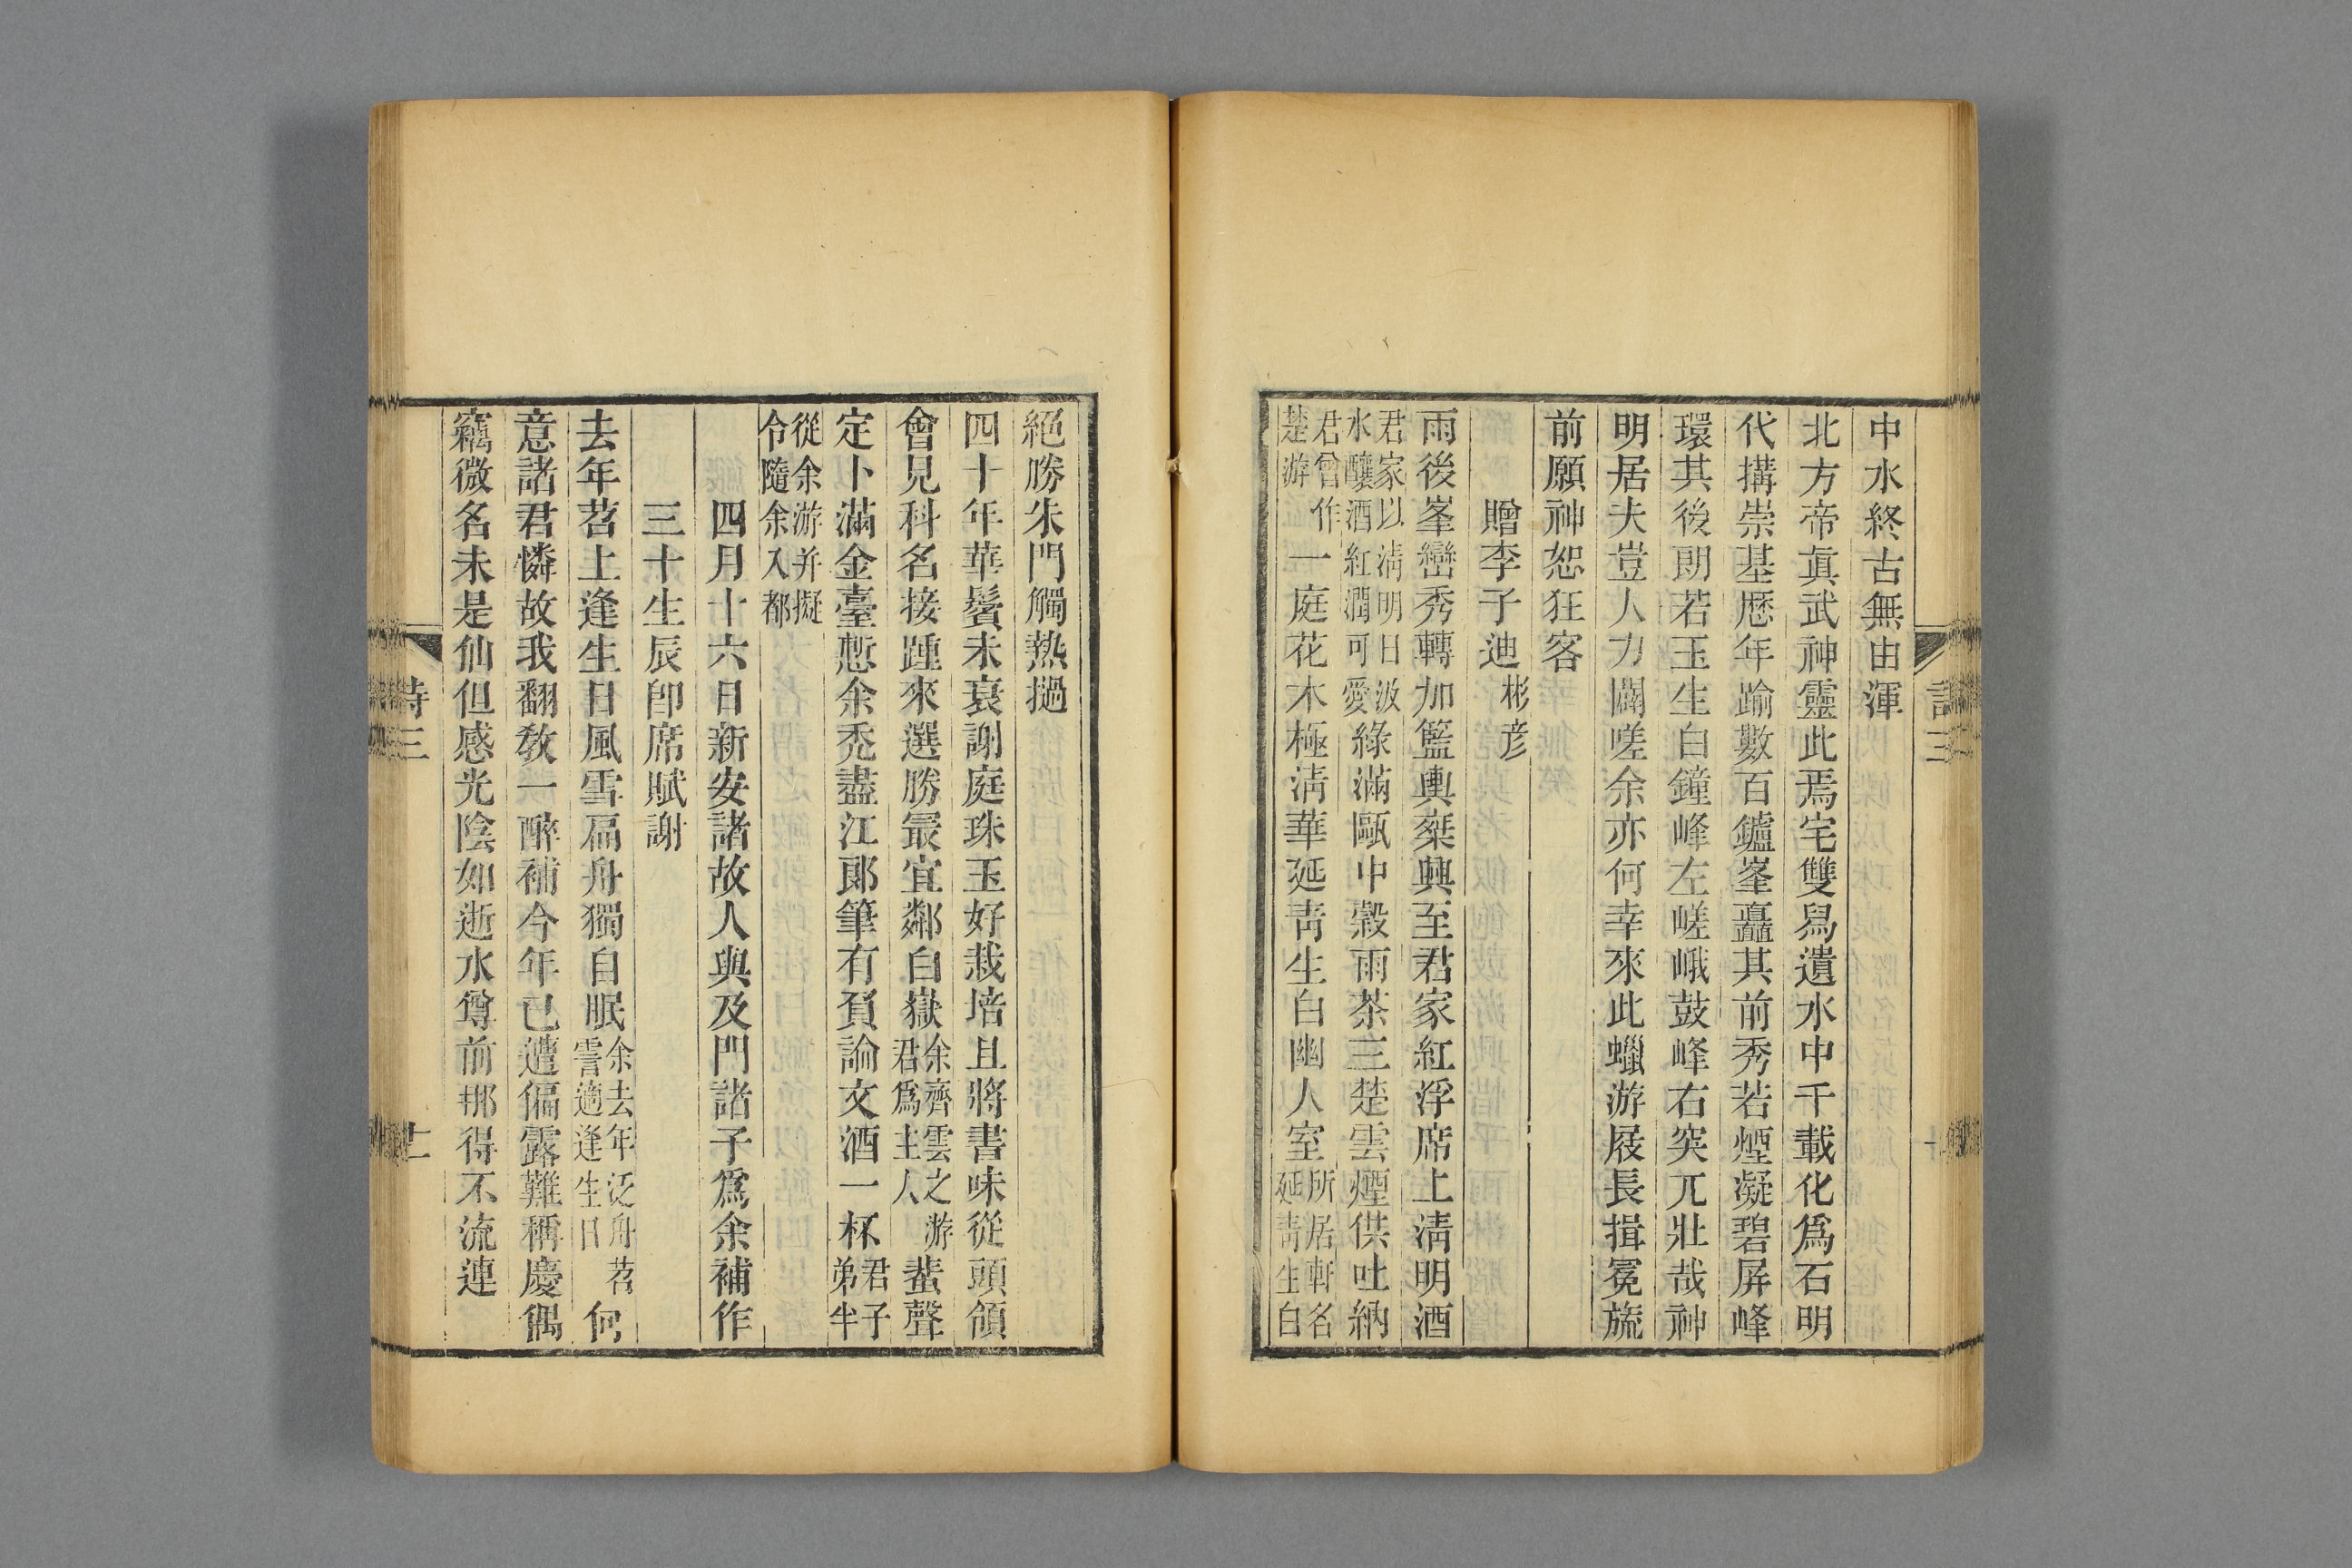 中水終古無由渾
北方帝眞武神靈此焉宅雙舄遺水中千載化爲石明
代搆崇基歷年踰數百鑪峯矗其前秀若煙凝碧屏峰
環其後朗若玉生白鐘峰左嵯峨鼓峰右突兀壯哉神
明居夫豈人力闢嗟余亦何幸來此蠟游屐長揖冕旒
前願神恕狂客
贈李子迪彬彥
雨後峯巒秀轉加籃輿乘興至君家紅浮席上淸明酒
君家以淸明日汲水釀酒紅潤可愛綠滿甌中穀雨茶三楚雲煙供吐納
君曾作楚游一庭花木極淸華延靑生白幽人室所居軒名延靑生白
絕勝朱門觸熱撾
四十年華鬢未衰謝庭珠玉好栽培且將書味從頭領
會見科名接踵來選勝最宜鄰白嶽余齊雲之游君爲主人蜚聲
定卜滿金臺慙余禿盡江郞筆有負論文酒一杯君子弟半
從余游并擬令隨余入都
四月十六日新安諸故人與及門諸子爲余補作
三十生辰卽席賦謝
去年苕上逢生日風雪扁舟獨自眠余去年泛舟苕霅適逢生日何
意諸君憐故我翻敎一醉補今年已遭偏露難稱慶偶
竊微名未是仙但感光陰如逝水尊前那得不流連
詩三